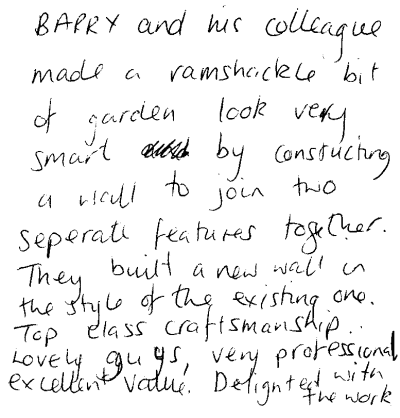 BARRY and his colleague
made a ramshackle bit
of garden look very
smart by constucting
a wall to join two
seperate features together.
They built a new wall in
the style of the existing one.
Top class craftsmanship..
Lovely guys, very professional
excellent value. Delighted with
the work